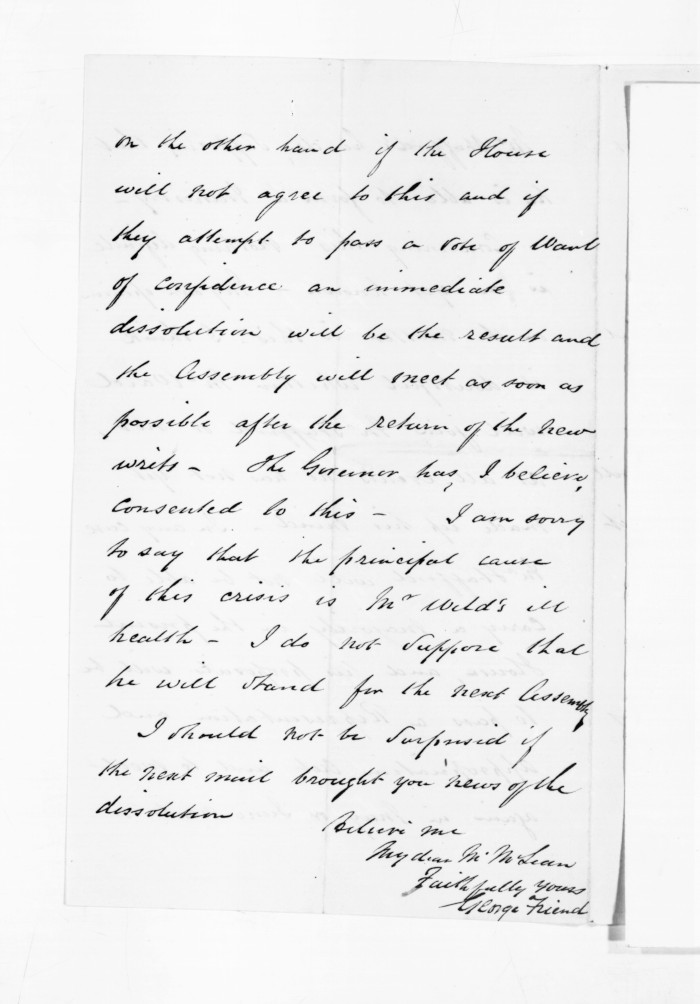 on the other hand if the House
will not agree to this and if
they attempt to pass a vote of Want
of confidence an immediate
dissolution will be the result and
the Assembly will meet as soon as
possible after the return of the new
writs - The Governor has, I believe,
consented to this - I am sorry
to say that the principal cause
of this crisis is Mr Weld's ill
health - I do not suppose that
he will stand for the next Assembly
I should not be surprised if
the next mail brought you news of the
dissolution
Believe me
My dear Mr McLean
Faithfully yours
George Friend